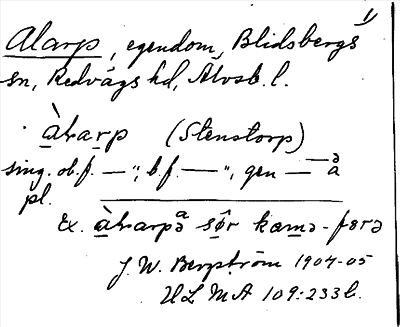 1)
Alarp, egendom, Blidsbergs
sn, Redvägs hd, Älvsb. l.
àlarp (Stenstorp)
sing. ob.f. — "; b.f. — ", gen — ə̄
pl.
Ex. àlarpə sôr kamə-fərə
J. W. Bergström 1904-05
ULMA 109:233b.